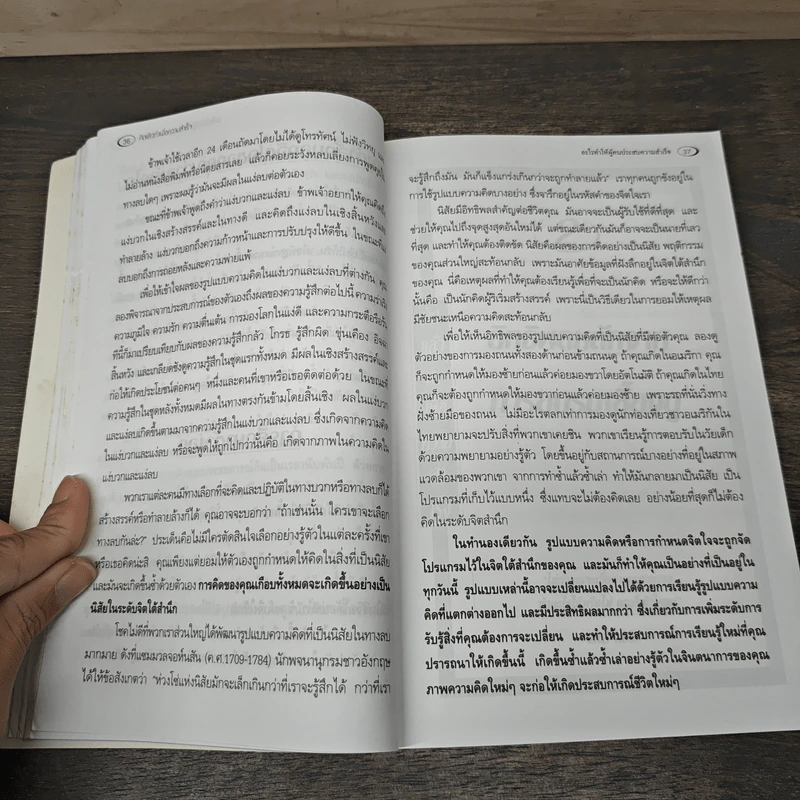 36
ข้าพเจ้าใช้เวลาอีก 24 เดือนถัดมาโดยไม่ได้ดูโทรทัศน์ ไม่ฟังวิทยุ และ
ไม่อ่านหนังสือพิมพ์หรือนิตยสารเลย แล้วก็คอยระวังหลบเลี่ยงการพูดคุยใน
ทางลบใดๆ เพราะผมรู้ว่ามันจะมีผลในแง่ลบต่อตัวเอง
ขณะที่ข้าพเจ้าพูดถึงคำว่าแง่บวกและแง่ลบ ข้าพเจ้าอยากให้คุณคิดถึง
แง่บวกในเชิงสร้างสรรค์และในทางดี และคิดถึงแง่ลบในเชิงสิ้นหวังและ
ทำลายล้าง แง่บวกบอกถึงความก้าวหน้าและการปรับปรุงให้ดีขึ้น ในขณะที่แง่
ลบบอกถึงการถอยหลังและความพ่ายแพ้
เพื่อให้เข้าใจผลของรูปแบบความคิดในแง่บวกและแง่ลบที่ต่างกัน คุณ
ลองพิจารณาจากประสบการณ์ของตัวเองถึงผลของความรู้สึกต่อไปนี้ ความร่าเริง
ความภูมิใจ ความรัก ความตื่นเต้น การมองโลกในแง่ดี และความกระตือรือร้น
ทีนี้ก็มาเปรียบเทียบกับผลของความรู้สึกกลัว โกรธ รู้สึกผิด ขุ่นเคือง อิจฉา
สิ้นหวัง และเกลียดชังดูความรู้สึกในชุดแรกทั้งหมด มีผลในเชิงสร้างสรรค์และ
ก่อให้เกิดประโยชน์ต่อคนๆ หนึ่งและคนที่เขาหรือเธอติดต่อด้วย ในขณะที่
ความรู้สึกในชุดหลังทั้งหมดมีผลในทางตรงกันข้ามโดยสิ้นเชิง ผลในแง่บวก
และแง่ลบเกิดขึ้นตามมาจากความรู้สึกในแง่บวกและแง่ลบ ซึ่งเกิดจากความคิด
ในแง่บวกและแง่ลบ หรือจะพูดให้ถูกไปกว่านั้นคือ เกิดจากภาพในความคิดใน
แง่บวกและแง่ลบ
พวกเราแต่ละคนมีทางเลือกที่จะคิดและปฏิบัติในทางบวกหรือทางลบก็ได้
สร้างสรรค์หรือทำลายล้างก็ได้ คุณอาจจะบอกว่า "ถ้าเช่นนั้น ใครเขาจะเลือก
ทางลบกันล่ะ?" ประเด็นคือไม่มีใครตัดสินใจเลือกอย่างรู้ตัวในแต่ละครั้งที่เขา
หรือเธอคิดน่ะสิ คุณเพียงแต่ยอมให้ตัวเองถูกกำหนดให้คิดในสิ่งที่เป็นนิสัย
และมันจะเกิดขึ้นซ้ำด้วยตัวเอง การคิดของคุณเกือบทั้งหมดจะเกิดขึ้นอย่างเป็น
นิสัยในระดับจิตใต้สำนึก
โชคไม่ดีที่พวกเราส่วนใหญ่ได้พัฒนารูปแบบความคิดที่เป็นนิสัยในทางลบ
มากมาย ดังที่แซมมวลจอห์นสัน (ค.ศ.1709-1784) นักพจนานุกรมชาวอังกฤษ
ได้ให้ข้อสังเกตว่า "ห่วงโซ่แห่งนิสัยมักจะเล็กเกินกว่าที่เราจะรู้สึกได้ กว่าที่เรา
อะไรทำให้ผู้คนประสบความสำเร็จ 37
จะรู้สึกถึงมัน มันก็แข็งแกร่งเกินกว่าจะถูกทำลายแล้ว" เราทุกคนถูกขังอยู่ใน
การใช้รูปแบบความคิดบางอย่าง ซึ่งจารึกอยู่ในรหัสดำของจิตใจเรา
นิสัยมีอิทธิพลสำคัญต่อชีวิตคุณ มันอาจจะเป็นผู้รับใช้ที่ดีที่สุด และ
ช่วยให้คุณไปถึงจุดสูงสุดอันใหม่ได้ แต่ขณะเดียวกันมันก็อาจจะเป็นนายที่เลว
ที่สุด และทำให้คุณต้องติดขัด นิสัยคือผลของการคิดอย่างเป็นนิสัย พฤติกรรม
ของคุณส่วนใหญ่สะท้อนกลับ เพราะมันอาศัยข้อมูลที่ฝังลึกอยู่ในจิตใต้สำนึก
ของคุณ นี่คือเหตุผลที่ทำให้คุณต้องเรียนรู้เพื่อที่จะเป็นนักคิด หรือจะให้ดีกว่า
นั้นคือ เป็นนักคิดผู้ริเริ่มสร้างสรรค์ เพราะนี่เป็นวิธีเดียวในการยอมให้เหตุผล
มีชัยชนะเหนือความคิดสะท้อนกลับ
เพื่อให้เห็นอิทธิพลของรูปแบบความคิดที่เป็นนิสัยที่มีต่อตัวคุณ ลองดู
ตัวอย่างของการมองถนนทั้งสองด้านก่อนข้ามถนนดู ถ้าคุณเกิดในอเมริกา คุณ
ก็จะถูกกำหนดให้มองซ้ายก่อนแล้วค่อยมองขวาโดยอัตโนมัติ ถ้าคุณเกิดในไทย
คุณก็จะต้องถูกกำหนดให้มองขวาก่อนแล้วค่อยมองซ้าย เพราะรถที่นั่นวิ่งทาง
ฝั่งซ้ายมือของถนน ไม่มีอะไรตลกเท่าการมองดูนักท่องเที่ยวชาวอเมริกันใน
ไทยพยายามจะปรับสิ่งที่พวกเขาเคยชิน พวกเขาเรียนรู้การตอบรับในวัยเด็ก
ด้วยความพยายามอย่างรู้ตัว โดยขึ้นอยู่กับสถานการณ์บางอย่างที่อยู่ในสภาพ
แวดล้อมของพวกเขา จากการทำซ้ำแล้วซ้ำเล่า ทำให้มันกลายมาเป็นนิสัย เป็น
โปรแกรมที่เก็บไว้แบบหนึ่ง ซึ่งแทบจะไม่ต้องคิดเลย อย่างน้อยที่สุดก็ไม่ต้อง
คิดในระดับจิตสำนึก
ในทำนองเดียวกัน รูปแบบความคิดหรือการกำหนดจิตใจจะถูกจัด
โปรแกรมไว้ในจิตใต้สำนึกของคุณ และมันก็ทำให้คุณเป็นอย่างที่เป็นอยู่ใน
ทุกวันนี้ รูปแบบเหล่านี้อาจจะเปลี่ยนแปลงไปได้ด้วยการเรียนรู้รูปแบบความ
คิดที่แตกต่างออกไป และมีประสิทธิผลมากกว่า ซึ่งเกี่ยวกับการเพิ่มระดับการ
รับรู้สิ่งที่คุณต้องการจะเปลี่ยน และทำให้ประสบการณ์การเรียนรู้ใหม่ที่คุณ
ปรารถนาให้เกิดขึ้นนี้ เกิดขึ้นซ้ำแล้วซ้ำเล่าอย่างรู้ตัวในจินตนาการของคุณ
ภาพความคิดใหม่ๆ จะก่อให้เกิดประสบการณ์ชีวิตใหม่ๆ